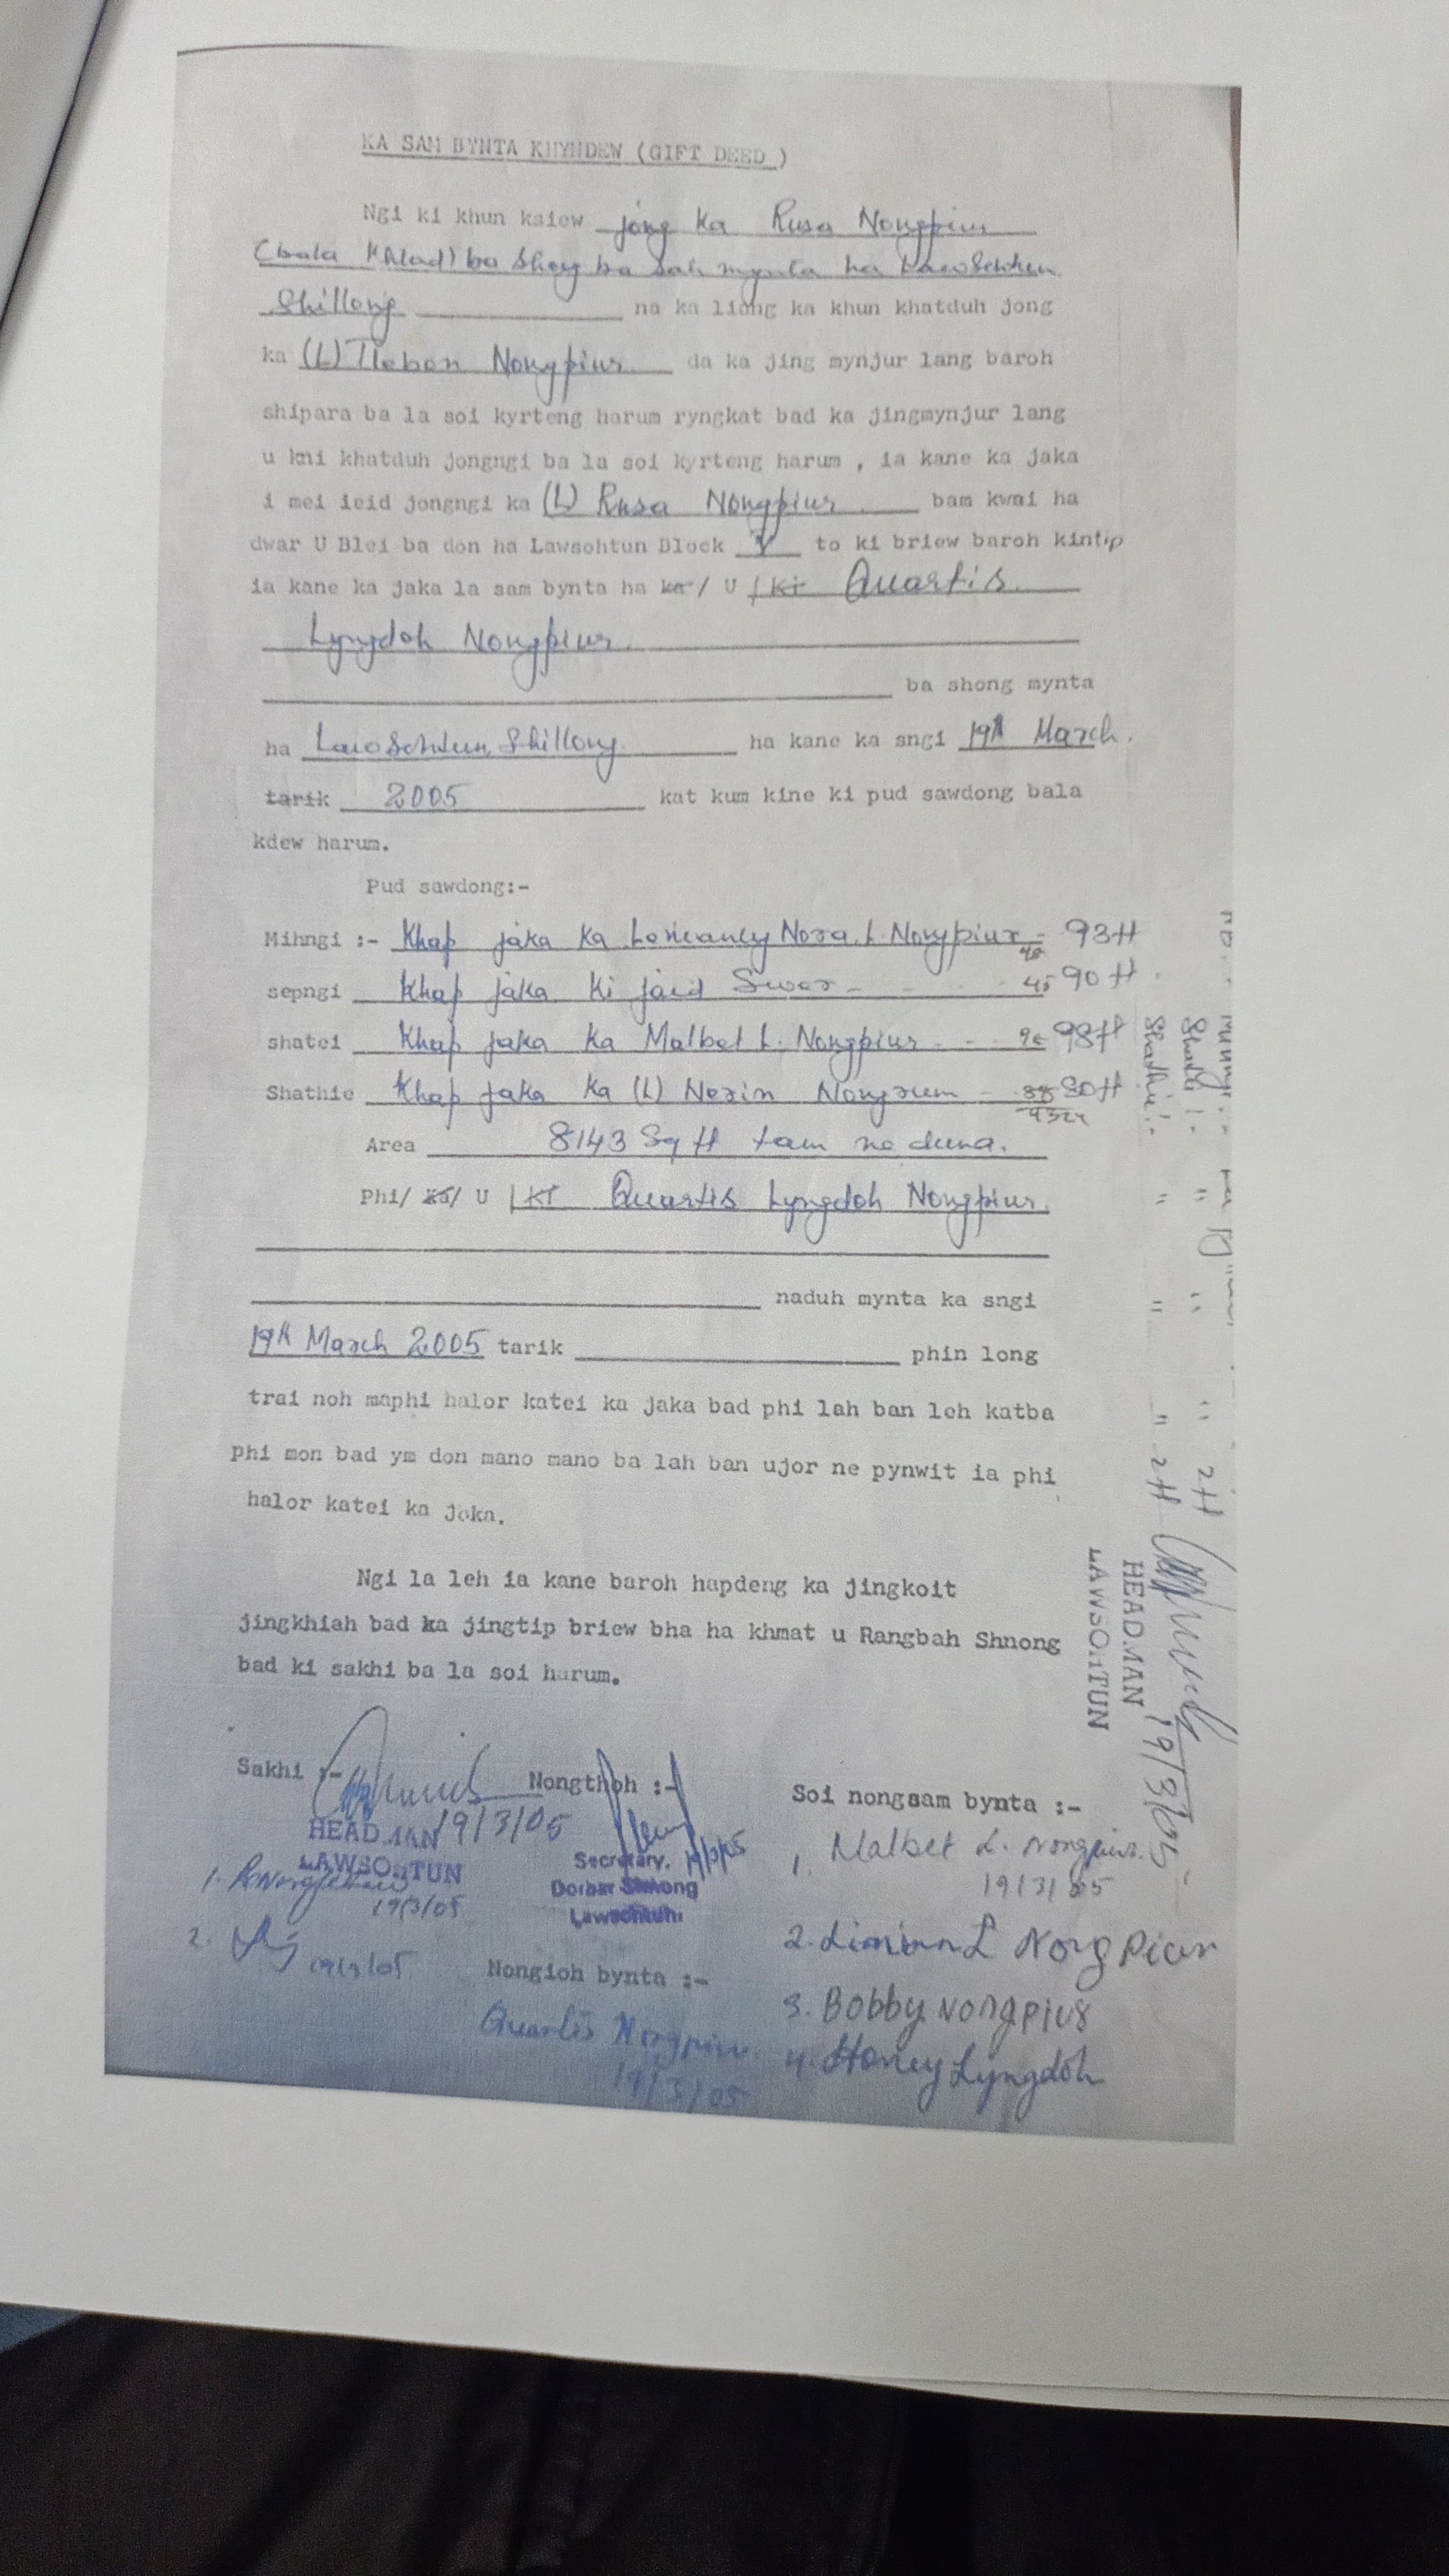 KA SAM BYNTA KHYNDEW (GIFT DEED )
Ngi ki khun ksiew jong ka Rusa Nongpiur
(bala khlad) ba shong ba sah mynta ha Lawsohtun
Shillong na ka liang ka khun khatduh jong
ka (L) Tlebon Nongpiur da ka jing mynjur lang baroh
shipara ba la soi kyrteng harum ryngkat bad ka jingmynjur lang
u kni khatduh jongngi ba la soi kyrteng harum , ia kane ka jaka
i mei ieid jongngi ka (L) Rusa Nongpiur bam kwai ha
dwar U Blei ba don ha Lawsohtun Block V to ki briew baroh kintip
ia kane ka jaka la sam bynta ha ka / U / Ki Quartis
Lyngdoh Nongpiur
ba shong mynta
ha Lawsohtun, Shillong ha kane ka sngi 19th March.
tarik 2005 kat kum kine ki pud sawdong bala
kdew harum.
Pud sawdong:-
Mihngi :- Khap jaka ka Nora. L. Nongpiur - 93 ft
sepngi Khap jaka ki jaid Swer - 45 90 ft
shatei Khap jaka ka Malbet L. Nongpiur - - 98 ft
Shathie Khap jaka ka (L) Nerin Nongrum - 80 ft
Area 8143 Sq ft tam ne duna.
Phi/ Ka/ U / Ki Quartis Lyngdoh Nongpiur
naduh mynta ka sngi
19th March 2005 tarik phin long
trai noh maphi halor katei ka jaka bad phi lah ban leh katba
phi mon bad ym don mano mano ba lah ban ujor ne pynwit ia phi
halor katei ka jaka.
Ngi la leh ia kane baroh hapdeng ka jingkoit
jingkhiah bad ka jingtip briew bha ha khmat u Rangbah Shnong
bad ki sakhi ba la soi harum.
Sakhi :- Nongthoh :- Soi nongsam bynta :-
19/3/05
HEADMAN
LAWSOHTUN
Secretary.
Dorbar Shnong
Lawsohtun
1. Malbet L. Nongpiur
19/3/05
1.
19/3/05
2.
2. L Nongpiur
Nongioh bynta :-
3. Bobby Nongpiur
Quartis Nongpiur
19/3/05
4. Honey Lyngdoh
Shatei :- " " " 2 ft
Shathie :- " " " 2 ft
HEADMAN
LAWSOHTUN
19/3/05